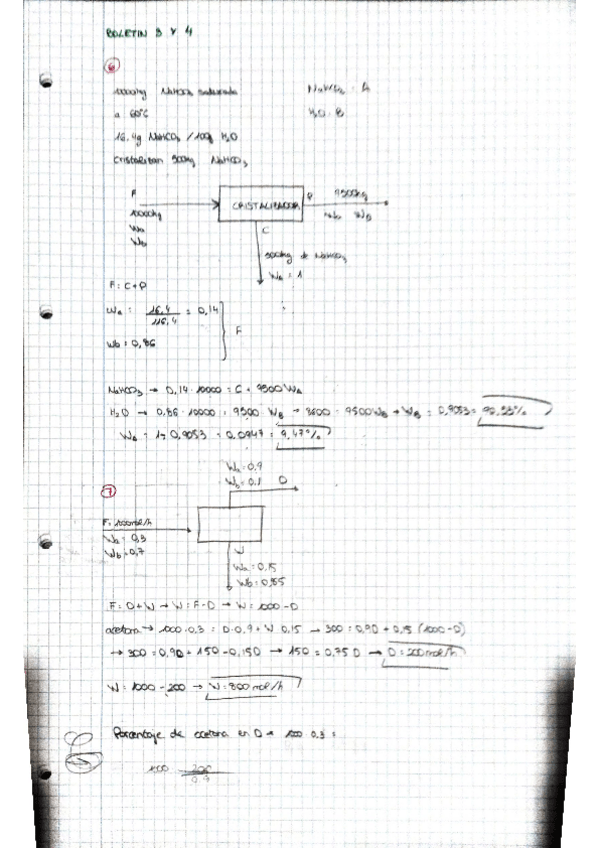 BOLETIN 3 Y 4
6
10000kg NaHCO3 saturada
NaHCO3 : A
a 60ºC
H2O : B
16.4g NaHCO3 / 100g H2O
cristalizan 500kg NaHCO3
F
10000kg
Wa
Wb
CRISTALIZADOR
P
9500kg
Wa WB
C
500kg de NaHCO3
Wa = 1
F = C+P
Wa = 16,4 / 116,4 = 0,14
F
Wb = 0,86
NaHCO3 → 0,14 · 10000 = C + 9500 Wa
H2O → 0,86 · 10000 = 9500 WB → 8600 = 9500 WB → WB = 0,9053 = 90,53%
Wa = 1- 0,9053 = 0,0947 = 9,47%
Wa = 0,9
Wb = 0.1
D
7
F= 1000mol/h
Wa = 0,3
Wb = 0,7
W
Wa = 0,15
Wb = 0,85
F = D+W → W = F-D → W = 1000-D
acetona → 1000·0,3 = D·0,9 + W 0,15 → 300 = 0,9D + 0,15 (1000-D)
→ 300 = 0,9D + 150 - 0,15D → 150 = 0,75 D → D = 200mol/h
W = 1000 - 200 → W = 800 mol/h
Porcentaje de acetona en D = 1000 · 0,3 =
100
0.9